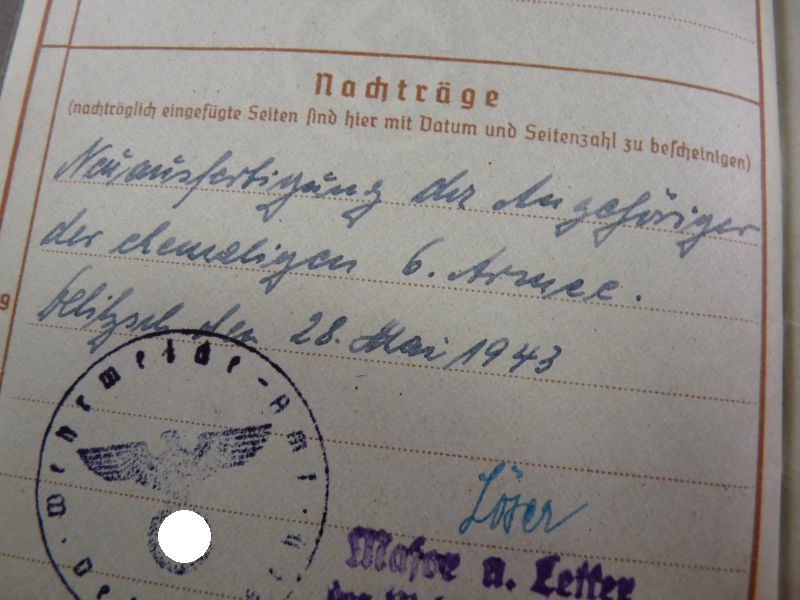 Nachträge
(nachträglich eingefügte Seiten sind hier mit Datum und Seitenzahl zu bescheinigen)
Neuausfertigung der Angehöriger
der ehemaligen 6. Armee.
den 28. Mai 1943
Wehrmelde-Amt
Löser
Major u. Leiter
g